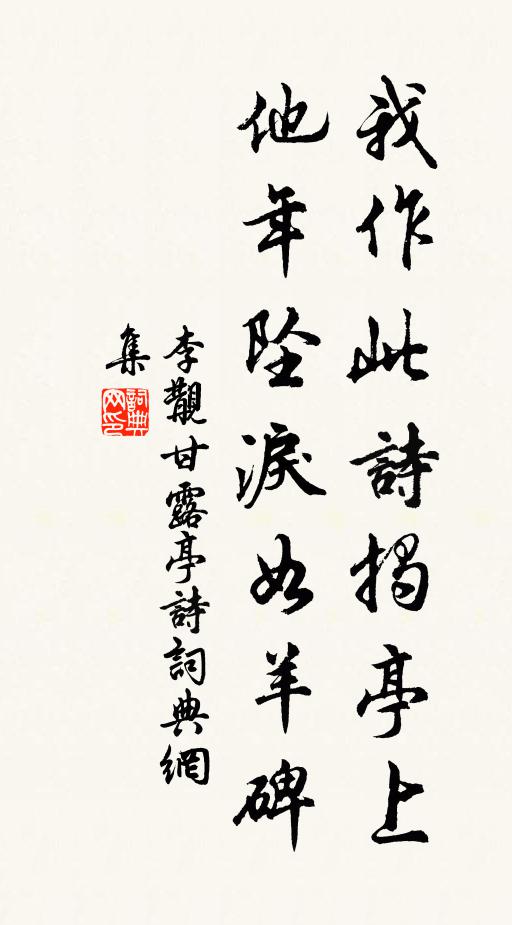 我作此詩揭亭上
他年墜淚如羊碑
李覯甘露亭詩詞典網
集
詞典
网印